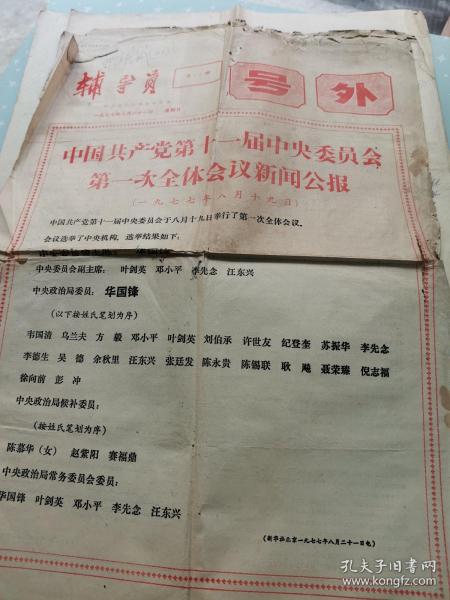 辅导员
号外
一九七七年八月二十二日 星期日
中国共产党第十一届中央委员会
第一次全体会议新闻公报
(一九七七年八月十九日)
中国共产党第十一届中央委员会于八月十九日举行了第一次全体会议。
会议选举了中央机构，选举结果如下：
中央委员会副主席：叶剑英 邓小平 李先念 汪东兴
中央政治局委员：华国锋
(以下按姓氏笔划为序)
韦国清 乌兰夫 方毅 邓小平 叶剑英 刘伯承 许世友 纪登奎 苏振华 李先念
李德生 吴德 余秋里 汪东兴 张廷发 陈永贵 陈锡联 耿飚 聂荣臻 倪志福
徐向前 彭冲
中央政治局候补委员：
(按姓氏笔划为序)
陈慕华(女) 赵紫阳 赛福鼎
中央政治局常务委员会委员：
华国锋 叶剑英 邓小平 李先念 汪东兴
(新华社北京一九七七年八月二十一日电)
孔夫子旧书网
www.kongfz.com